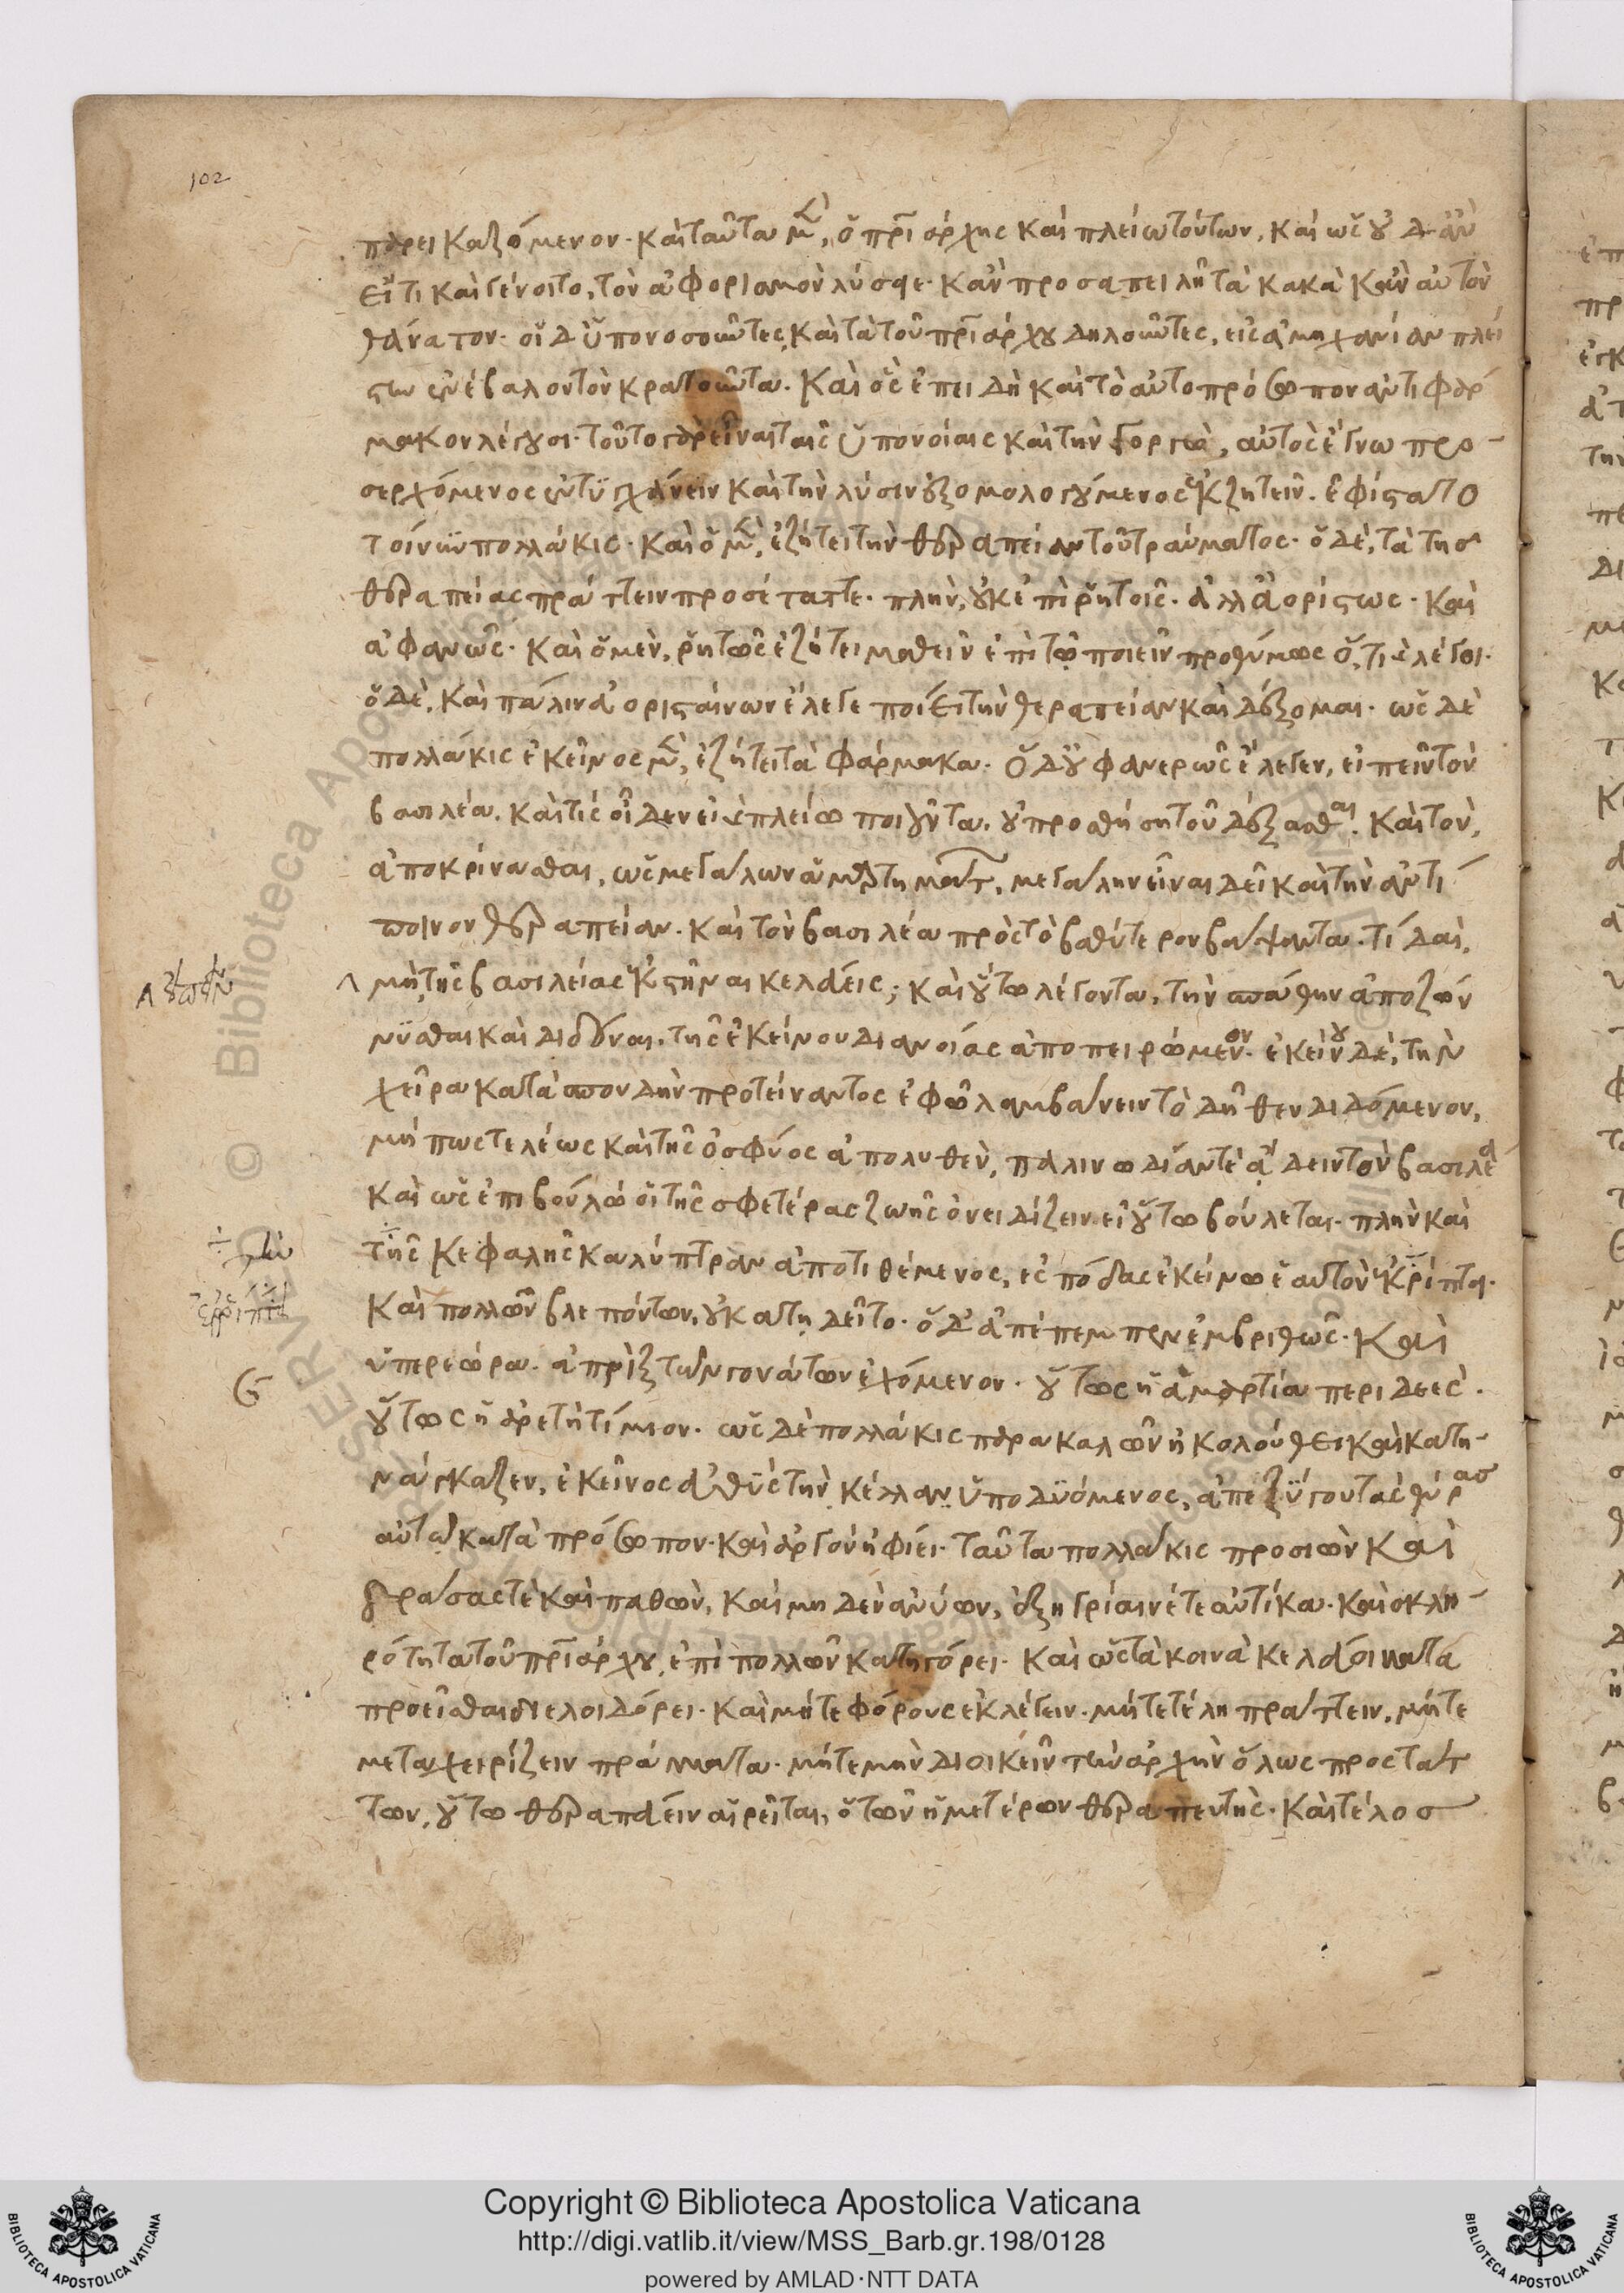 102
παρεικαζόμενον. καὶ ταῦτα μὲν, ὁ πριάρχης καὶ πλείω τούτων. καὶ ὡς οὐδ' ἂν
εἴ τι καὶ γένοιτο, τὸν ἀφορισμὸν λύσαι. κἂν προσαπειλῇ τὰ κακὰ κἂν αὐτὸν
θάνατον. οἱ δ' ὑπονοσοῦντες καὶ τὰ τοῦ πριάρχου δηλοῦντες, εἰς ἀμηχανίαν πλεί
στω ἐνέβαλον τὸν κρατοῦντα. καὶ ὃς ἐπειδὴ καὶ τὸ αὐτοπρόσωπον ἀντιφάρ
μακον λέγουσι. τοῦτο γὰρ εἶναι ταῖς ὑπονοίαις καὶ τὴν γοργιὰ, αὐτὸς ἔγνω προ-
σερχόμενος ἐντυγχάνειν καὶ τὴν λύσιν ἐξομολογούμενος ἐκζητεῖν. ἐφίστατο
τοίνυν πολλάκις. καὶ ὁ μὲν, ἐζήτει τὴν θεραπείαν τοῦ τραύματος. ὁ δὲ, τὰ τῆς
θεραπείας πράττειν προσέταττε. πλὴν, οὐκ ἐπὶ ῥητοῖς. ἀλλ' ἀορίστως. καὶ
ἀφανῶς. καὶ ὁ μὲν, ῥητῶς ἐζήτει μαθεῖν ἐπὶ τῷ ποιεῖν προθύμως ὅ,τι λέγοι.
ὁ δὲ, καὶ πάλιν ἀορισταίνων ἔλεγε ποίει τὴν θεραπείαν καὶ δέξομαι. ὡς δὲ
πολλάκις ἐκεῖνος μὲν, ἐζήτει τὰ φάρμακα. ὁ δ' οὐ φανερῶς ἔλεγεν, εἰπεῖν τὸν
βασιλέα. καὶ τίς οἶδεν εἰ πλείω ποιοῦντα. οὐ προσθήσῃ τοῦ δέξασθαι. καὶ τὸν,
ἀποκρίνασθαι, ὡς μεγάλων ἁμαρτημάτ, μεγάλην εἶναι δεῖ καὶ τὴν ἀντί
ποινον θεραπείαν. καὶ τὸν βασιλέα πρὸς τὸ βαθύτερον βάψαντα. τί δαὶ.
μὴ τῆς βασιλείας ἐκστῆναι κελεύεις; καὶ οὕτω λέγοντα, τὴν σπάθην ἀποζών
νυσθαι καὶ διδόναι, τῆς ἐκείνου διανοίας ἀποπειρώμενον. ἐκείνου δὲ, τὴν
χεῖρα κατὰ σπουδὴν προτείναντος ἐφ' ᾧ λαμβάνειν τὸ δῆθεν διδόμενον,
μή πως τελέως καὶ τῆς ὀσφύος ἀπολυθὲν, παλινῳδίαν τὲ ᾄδειν τὸν βασιλέα
καὶ ὡς ἐπιβούλῳ οἱ τῆς σφετέρας ζωῆς ὀνειδίζειν εἰ οὕτω βούλεται. πλὴν καὶ
τῆς κεφαλῆς καλύπτραν ἀποτιθέμενος, ἐς πόδας ἐκείνῳ ἑαυτὸν ἐκρίπτει.
καὶ πολλῶν βλεπόντων, οὐκ ατηδεῖτο. ὁ δ' ἀπέπεμπεν ἐμβριθῶς. καὶ
ὑπερεώρα. ἀπρὶξ τῶν γονάτων ἐχόμενον. οὕτως ἡ ἁμαρτία περιδεὲς.
οὕτως ἡ ἀρετὴ τίμιον. ὡς δὲ πολλάκις παρακαλῶν ἠκολούθει καὶ κατη-
νάγκαζεν, ἐκεῖνος εὐθὺς τὴν κέλλαν ὑποδυόμενος, ἀπεζύγου τὰς θύρας
αὐτῷ κατὰ πρόσωπον. καὶ ἀργὸν ἠφίει. ταῦτα πολλάκις προσιὼν καὶ
δράσας τὲ καὶ παθὼν, καὶ μηδὲν ἀνύων, ἐξηγρίαινέ τε αὐτίκα. καὶ σκλη-
ρότητα τοῦ πριάρχου ἐπὶ πολλῶν κατηγόρει. καὶ ὡς τὰ κοινὰ κελεύσματα
προεῖσθαι διελοιδόρει. καὶ μήτε φόρους ἐκλέγειν. μήτε τέλη πράττειν, μήτε
μεταχειρίζειν πράγματα. μήτε μὴν διοικεῖν τὴν ἀρχὴν ὅλως προστάτ
των, οὕτω θεραπεύειν αἱρεῖται, ὁ τῶν ἡμετέρων θεραπευτής. καὶ τέλος
Copyright © Biblioteca Apostolica Vaticana
http://digi.vatlib.it/view/MSS_Barb.gr.198/0128
powered by AMLAD·NTT DATA